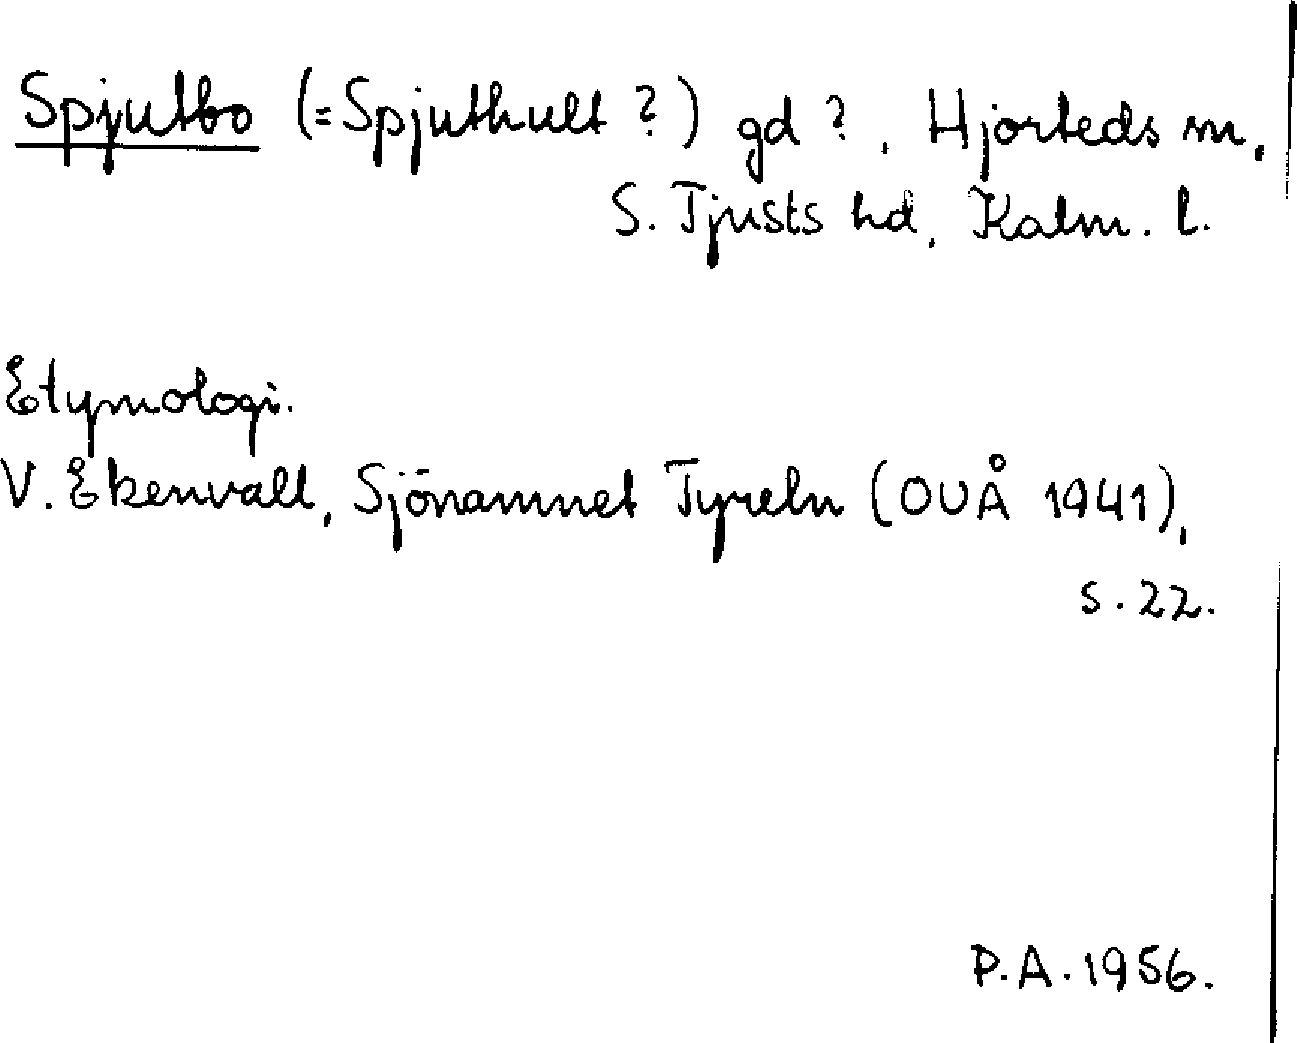 Spjutbo (=Spjuthult ?) gd ?, Hjorteds sn,
S. Tjusts hd, Kalm. l.
Etymologi.
V. Ekenvall, Sjönamnet Tyreln (OUÅ 1941),
s. 22.
P.A. 1956.